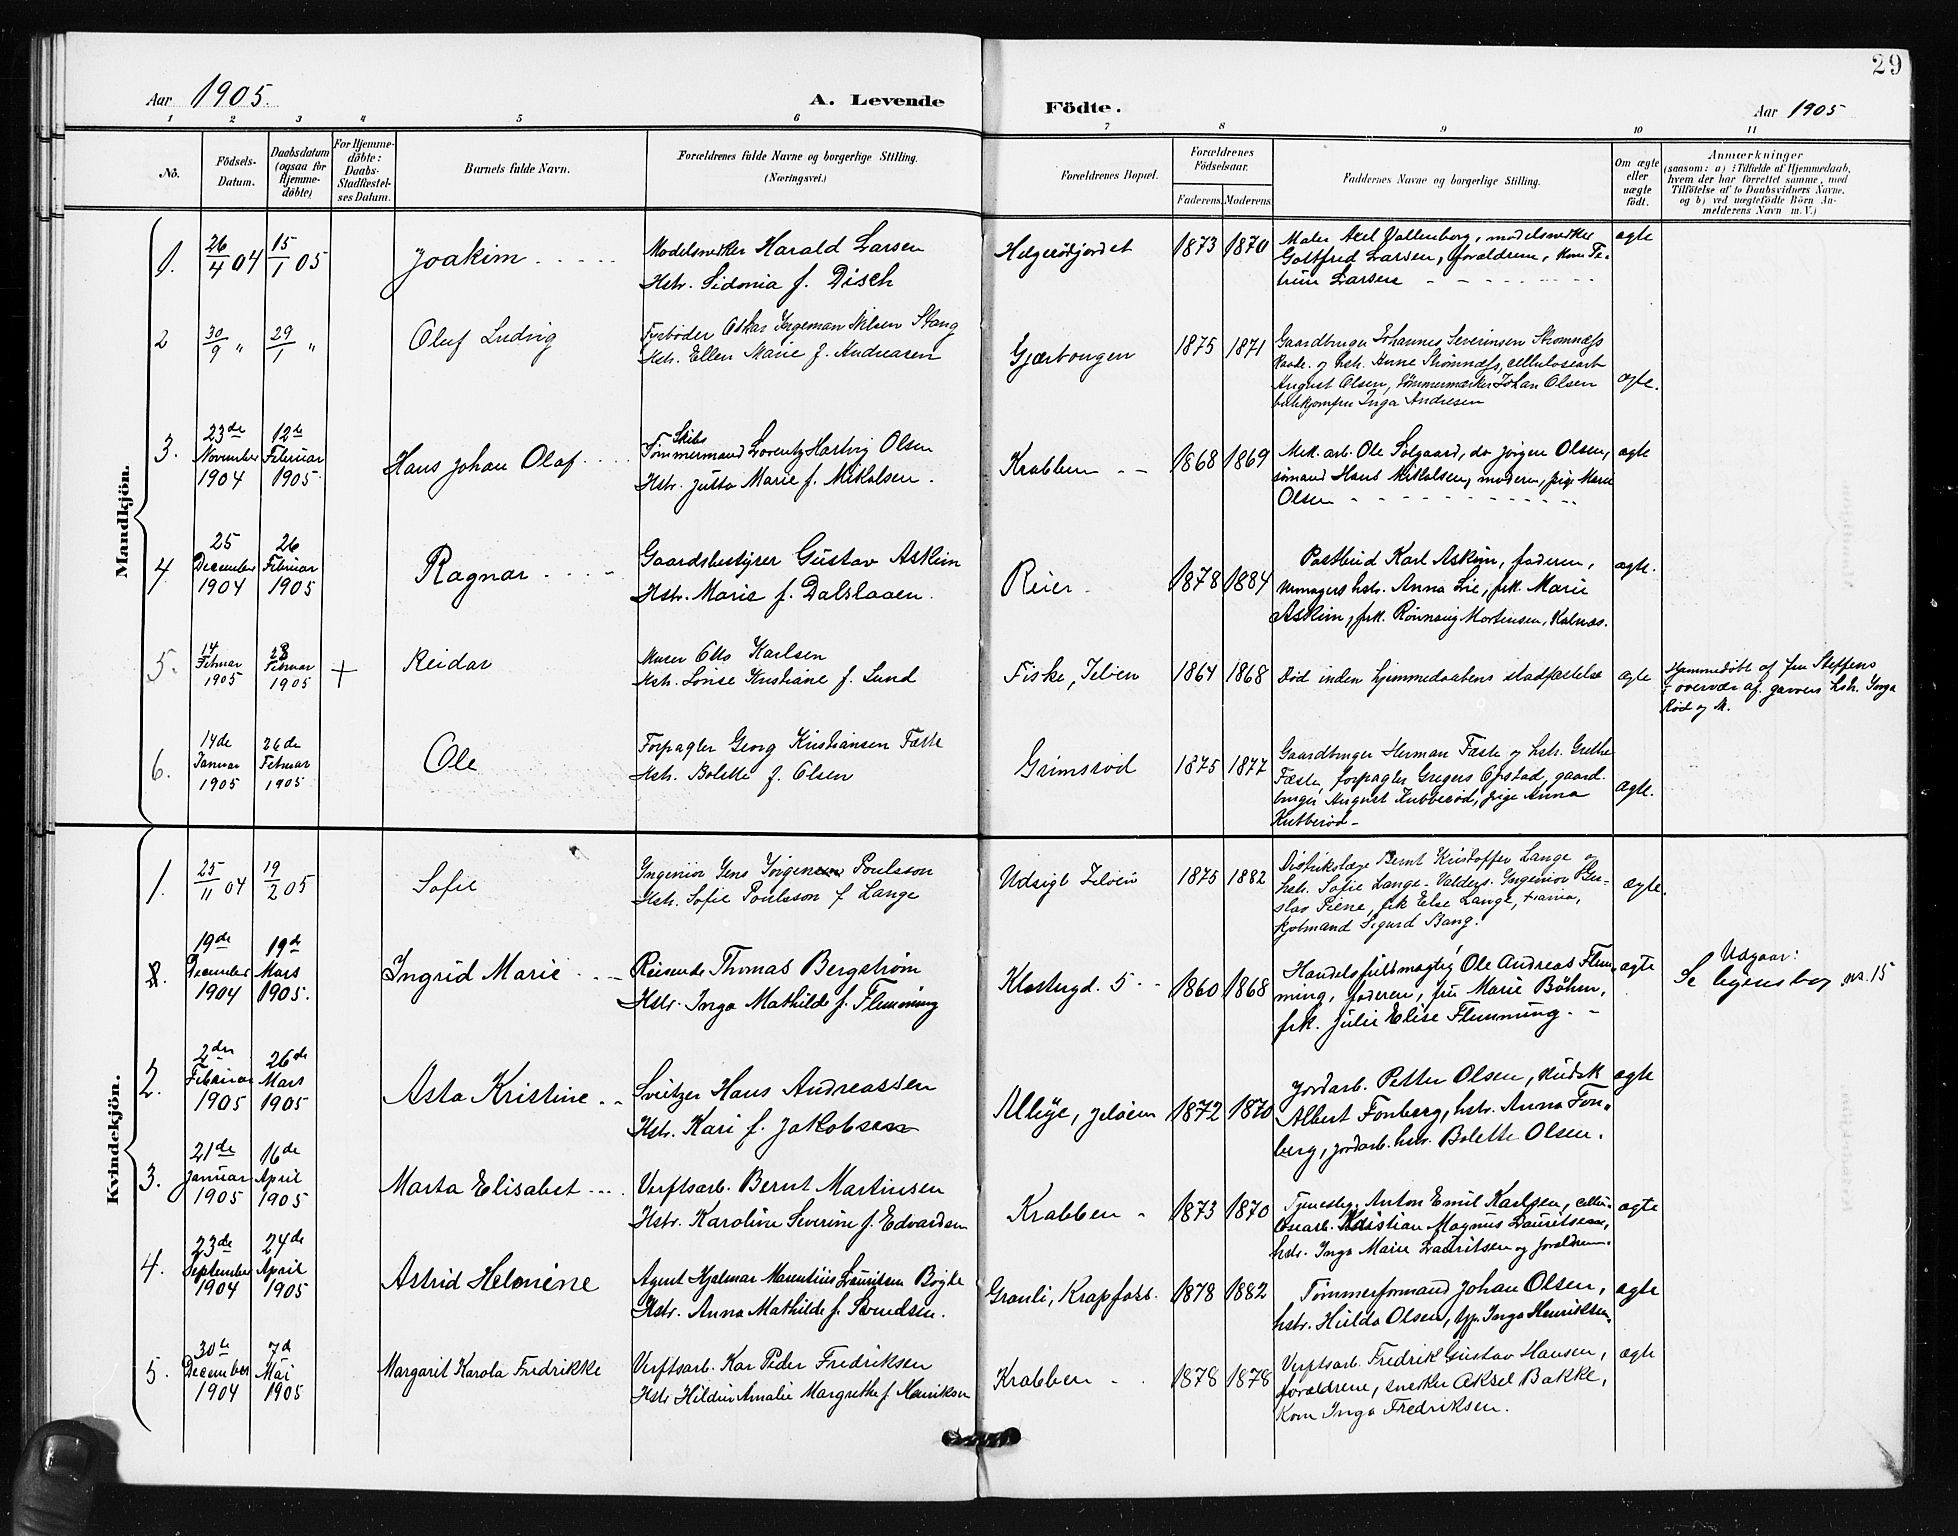 29
Aar 1905.
A. Levende
Födte.
Aar 1905
1 2 3 4 5 6 7 8 9 10 11
No.
Födsels-
Datum.
Daabsdatum
(ogsaa for
Hjemme-
döbte)
For Hjemme-
döbte:
Daabs-
Stadfæstel-
ses Datum.
Barnets fulde Navn.
Forældrenes fulde Navne og borgerlige Stilling.
(Næringsvei.)
Forældrenes Bopæl.
Forældrenes
Födselsaar.
Faderens. Moderens.
Faddernes Navne og borgerlige Stilling.
Om ægte
eller
uægte
født.
Anmærkninger
(saasom: a) i Tilfælde af Hjemmedaab,
hvem der har forrettet samme, med
Tilföielse af to Daabsvidners Navne,
og b) ved uægtefödte Börn An-
melderens Navn m. V.)
Mandkjön.
1. 26/4 04 15/1 05
Joakim
Modelsnedker Harald Larsen
Hstr. Sidonia f. Disch
Helgerödjordet
1873 1870
Maler Axel Vallenborg, modelsnedker
Gottfred Larsen, forældrene, Kone Pe-
trine Larsen
ægte
2 30/9 „ 29/1 „
Oluf Ludvig
Fyrböder Oskar Ingeman Nilsen Stang
Hstr. Ellen Marie f. Andreasen
Gjærbongen
1875 1871
Gaardbruger Johannes Severinsen Strømnæss
Raade og hstr. Anne Strømnæss, cellulosearb.
August Olsen, Tömmermærker Johan Olsen
Inga Andresen
ægte.
3. 23de November 1904 12te Februar 1905.
Hans Johan Olaf
Skibs
Tömmermand Lorentz Hartvig Olsen
Hstr. Jutta Marie f. Mikalsen.
Krabben
1868 1869
Mek. arb. Ole Solgaard, do Jörgen Olsen,
sömand Hans Mikkelsen, moderen, pige Marie
Olsen
ægte
4 25 December 1904 26 Februar 1905
Ragnar
Gaardsbestyrer Gustav Askim
Hstr. Marie f. Dalslaaen.
Reier
1878 1884
Postbud Karl Askim, faderen,
hstr. Anna Lie, frk. Marie
Askim, frk. Rönnaug Mortensen, Kalnæs.
ægte.
5. 14 Februar 1905 28 Februar 1905 +
Reidar
Murer Otto Karlsen
Hstr. Lovise Kristiane f. Lund
Fiske, Jelöen
1864 1868
Död inden hjemmedaabens stadfæstelse
ægte
Hjemmedöbt af fru Steffens
i overvær af garvers hstr. Inga
Röd og M.
6. 14de Januar 1905 26de Februar 1905
Ole
Forpagter Georg Kristiansen Fæste
Hstr. Bolette f. Olsen
Grimsrød
1875 1877
Gaardbruger Herman Fæste og hstr. Grethe
Fæste, forpagter Gregers Opstad, gaard-
bruger August Kubberød, pige Anna
Kubberød
ægte.
Kvindekjön.
1. 25/11 04 19/2 05
Sofie
Ingeniör Jens Jörgensen Poulsson
Hstr. Sofie Poulsson f Lange
Udsigt Jelöen
1875 1882
Distriktslæge Bernt Kristoffer Lange og
hstr. Sofie Lange - Valders. Ingeniör Bre-
slav Piene, frk Else Lange,
kjöbmand Sigurd Bang.
ægte.
19de December 1904 19de Mars 1905.
Ingrid Marie
Reisende Thomas Bergström
Hstr. Inga Mathilde f. Flemming
Klostergd. 5
1860 1868
Handelsfuldmægtig Ole Andreas Flem-
ming, faderen, fru Marie Böhm,
frk. Julie Elise Flemming.
ægte
Udgaar:
Se byens bog nr. 15
2. 2den Februar 1905 26de Mars 1905
Asta Kristine
Sveitzer Hans Andreassen
Hstr. Kari f. Jakobsen
Alleye, Jelöen
1872 1870
Jordarb. Petter Olsen, Kudsk
Albert Fonberg, hstr. Anna Fon-
berg, jordarb. hstr. Bolette Olsen.
ægte
3. 21de Januar 1905 16de April 1905
Marta Elisabet
Verftsarb. Bernt Martinsen
Hstr. Karoline Severine f. Edvardsen
Krabben
1873 1870
Tjenestg. Anton Emil Karlsen, cellu-
losearb. Kristian Magnus Lauritsen,
hstr. Inga Marie Lauritsen og forældrene.
ægte
4. 23de September 1904 24de April 1905
Astrid Helmine
Agent Hjalmar Marentius Lauritsen Bögle
Hstr. Anna Mathilde f. Svendsen.
Granli, Krapfoss.
1878 1882
Tömmerformand Johan Olsen,
hstr. Hulda Olsen, Inga Henriksen
ægte
5. 30te December 1904 7d Mai 1905
Margarit Karola Fredrikke
Verftsarb. Kar Peder Fredriksen
Hstr Hildur Amalie Margrethe f. Henriksen
Krabben
1878 1878
Verftsarb. Fredrik Gustav Hansen,
forældrene, snedker Aksel Bakke,
Kone Inga Fredriksen.
ægte